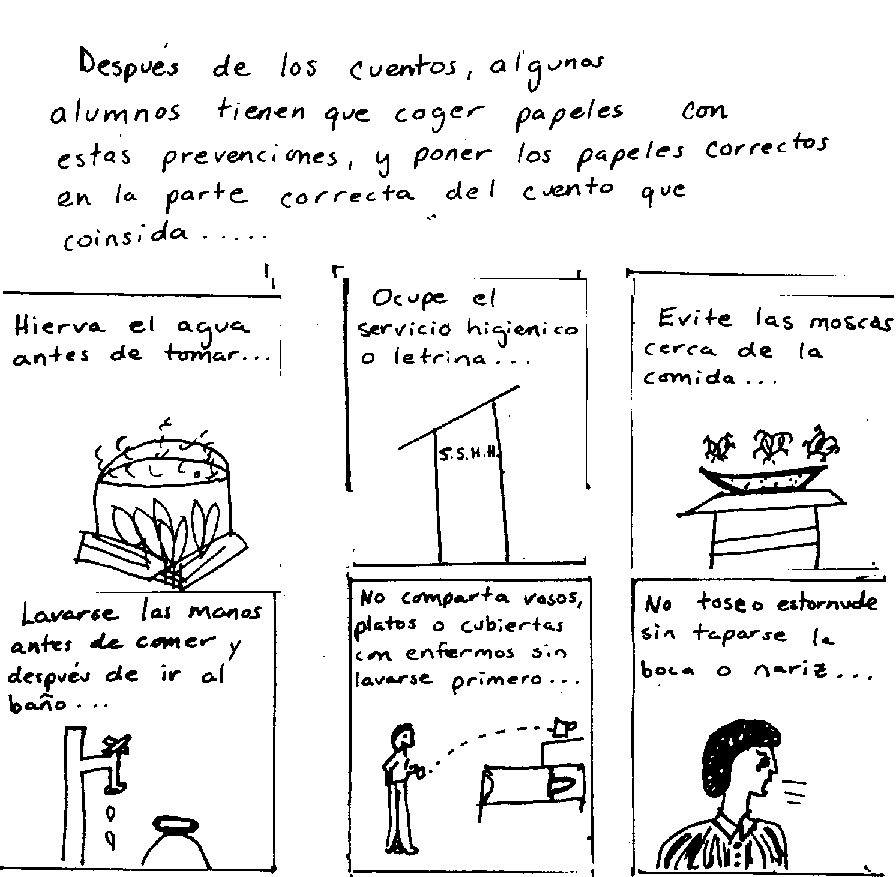 Después de los cuentos, algunos
alumnos tienen que coger papeles con
estas prevenciones, y poner los papeles correctos
en la parte correcta del cuento que
coinsida.....
Hierva el agua
antes de tomar...
Ocupe el
servicio higienico
o letrina...
S.S.H.H.
Evite las moscas
cerca de la
comida...
Lavarse las manos
antes de comer y
después de ir al
baño...
No comparta vasos,
platos o cubiertas
con enfermos sin
lavarse primero...
No tose o estornude
sin taparse la
boca o nariz...